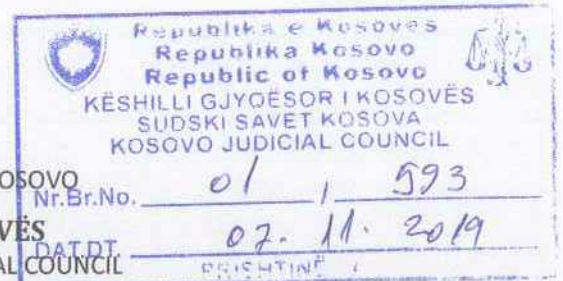 Republika e Kosovës
Republika Kosovo
Republic of Kosovo
KËSHILLI GJYQËSOR I KOSOVËS
SUDSKI SAVET KOSOVA
KOSOVO JUDICIAL COUNCIL
OSOVO
Nr.Br.No. 01 / 593
VËS
DAT.DT. 07. 11. 2019
AL COUNCIL
PRISHTINË